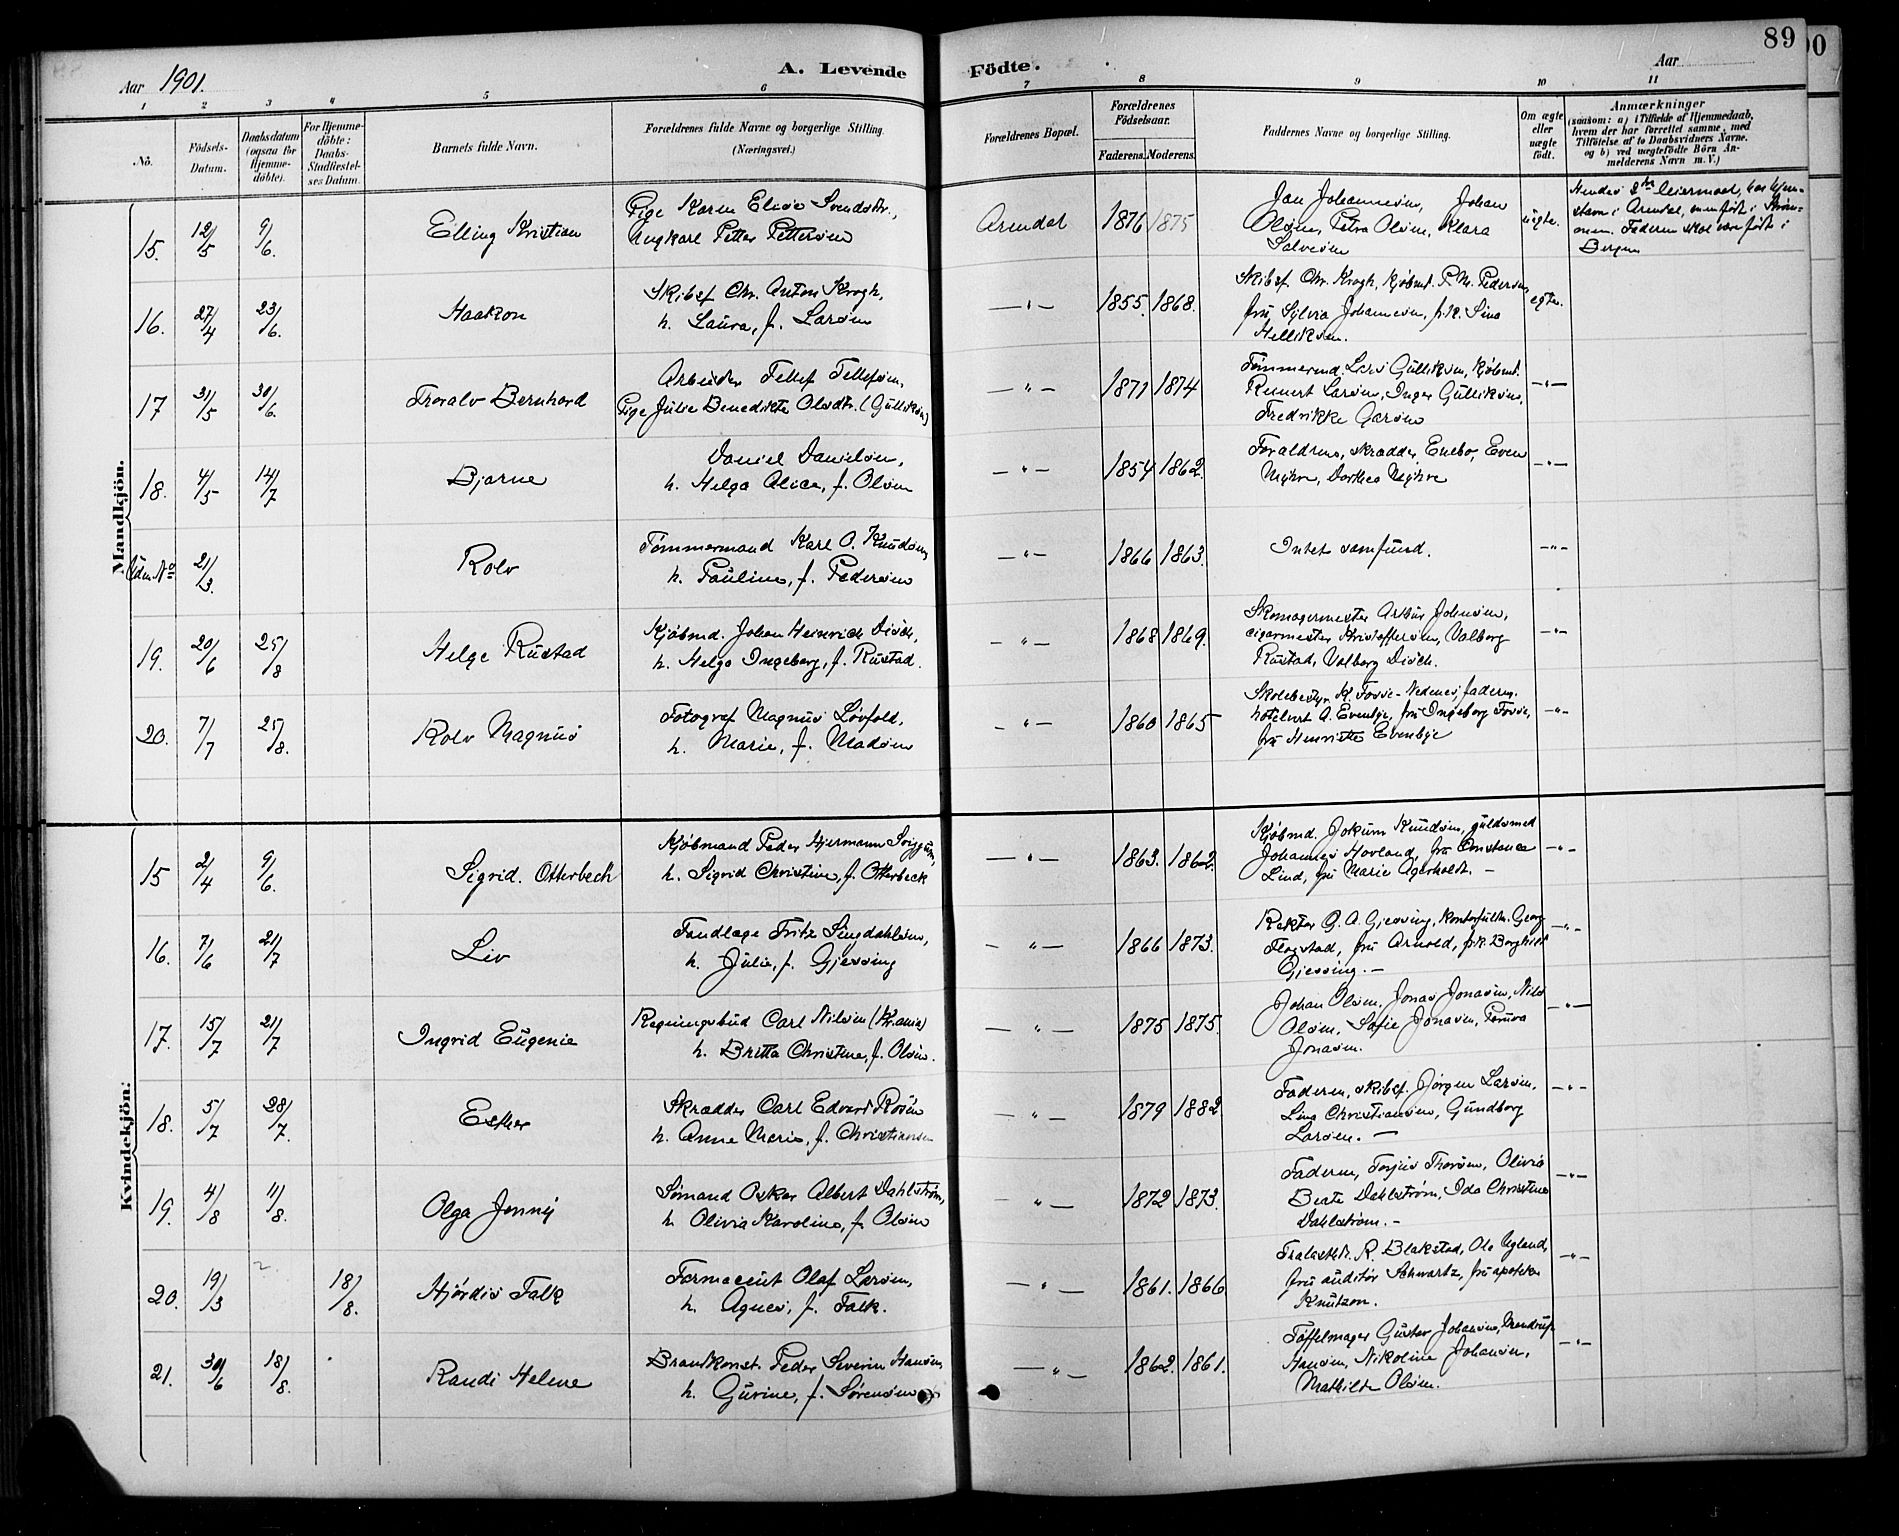 89
Aar 1901.
A. Levende Födte.
Aar
1 2 3 4 5 6 7 8 9 10 11
No.
Födsels-Datum.
Daabsdatum (ogsaa for Hjemme-döbte).
For Hjemme-döbte: Daabs-Stadfæstel-ses Datum.
Barnets fulde Navn.
Forældrenes fulde Navne og borgerlige Stilling. (Næringsvei.)
Forældrenes Bopæl.
Forældrenes Födselsaar.
Faderens. Moderens.
Faddernes Navne og borgerlige Stilling.
Om ægte eller uægte födt.
Anmærkninger
(saasom: a) i Tilfælde af Hjemmedaab, hvem der har forrettet samme, med Tilföielse af to Daabsvidners Navne, og b) ved uægtefödte Börn Anmelderens Navn m. V.)
Mandkjön.
15. 12/5 9/6. Elling Kristian
Pige Karen Elise Svendsdtr.,
Ungkarl Petter Pettersen
Arendal 1876 1875
Jan Johannesen, Johan
Olsen, Petra Olsen, Klara
Salvesen
uegte.
Hendes 2det Leiermaal, har hjem-
stavn i Arendal, men født i
Faderen skal være født i
Bergen
16. 27/4 23/6. Haakon
Skibsf. Chr. Anton Krogh,
h. Laura, f. Larsen
— " — 1855. 1868.
Skibsf Chr. Krogh, Kjøbmd. P. M. Pedersen
fru Sylvia Johannesen, frk. Lina
Helliksen.
egte.
17 31/5 30/6 Thoralv Bernhard
Arbeider Tellef Tellefsen,
Pige Julie Benedikte Olsdtr. (Gulliksen)
— " — 1871 1874
Tømmermd. Lars Gulliksen, Kjøbmd.
Reinert Larsen, Inger Gulliksen,
Fredrikke Larsen
— " —
18. 4/5 14/7 Bjarne
Daniel Danielsen,
h. Helga Alice, f. Olsen
— " — 1854 1862.
Forældrene, skrædder Enebo, Even
Myhre, Dorthea Myhre
— " —
Uden No 21/3. Rolv
Tømmermand Karl O. Knudsen,
h. Pauline, f. Pedersen
— " — 1866 1863.
Intet samfund.
— " —
19. 20/6 25/8 Helge Rustad
Kjøbmd. Johan Heinrich Disch,
h. Helga Ingeborg, f. Rustad.
— " — 1868 1869.
Skomagermester Arthur Johnsen,
cigarmester Kristoffersen, Valborg
Rustad, Valborg Disch.
— " —
20. 7/7 25/8. Rolv Magnus
Fotograf Magnus Løvfold,
h. Marie, f. Madsen
— " — 1860 1865
Skolebestyr. K. Fosse-Nedenes, faderen.
hotelvert A. Evenbye, fru Ingeborg Fosse,
fru Henriette Evenbye
— " —
Kvindekjön:
15 2/4 9/6. Sigrid. Otterbech
Kjøbmand Peder Hjermann
h. Sigrid Christine, f. Otterbeck
— " — 1863. 1862.
Kjøbmd. Jokum Knudsen, guldsmed
Johannes Hovland, fru Constance
Lind, fru Marie Agerholdt. —
— " —
16. 7/6 21/7 Liv
Tandlæge Fritz Lingdahlsen,
h. Julie, f. Gjessing
— " — 1866 1873.
Rektor G. A. Gjessing, Kontorfuldm. Georg
Flagstad, fru Arnold, frk. Borghild
Gjessing. —
— " —
17. 15/7 21/7 Ingrid Eugenie
Regningsbud Carl Nilsen (Kr.ania)
h. Britta Christine, f. Olsen.
— " — 1875 1875.
Johan Olsen, Jonas Jonasen, Nils
Olsen, Sofie Jonasen,
Jonasen.
— " —
18. 5/7 28/7. Esther
Skrædder Carl Edvard Rosén
h. Anne Marie, f. Christiansen
— " — 1879 1882
Faderen, skibsf. Jörgen Larsen,
Lina Christiansen, Gundborg
Larsen. —
— " —
19. 4/8 11/8. Olga Jenny
Sømand Oskar Albert Dahlstrøm,
h. Olivia Karoline, f. Olsen
— " — 1872 1873.
Faderen, Terjus Thorsen, Olivia
Beate Dahlstrøm, Ida Christine
Dahlstrøm. —
— " —
20. 19/3 18/8. Hjördis Falk
Farmaceut Olaf Larsen,
h. Agnes, f. Falk.
— " — 1861. 1866
Trælasthdl. R. Blakstad, Ole Ugland,
fru auditør Schwartz, fru apotheker
Knutzon.
— " —
21. 30/6 18/8. Randi Helene
Brandkonst. Peder Severin Hansen,
h. Gurine, f. Sørensen
— " — 1862. 1861.
Tøffelmager Gustav Johansen,
Hansen, Nikoline Johansen,
Mathilde Olsen.
— " —